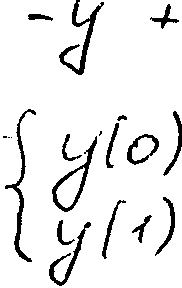 -y +
{ y(0)
y(1)